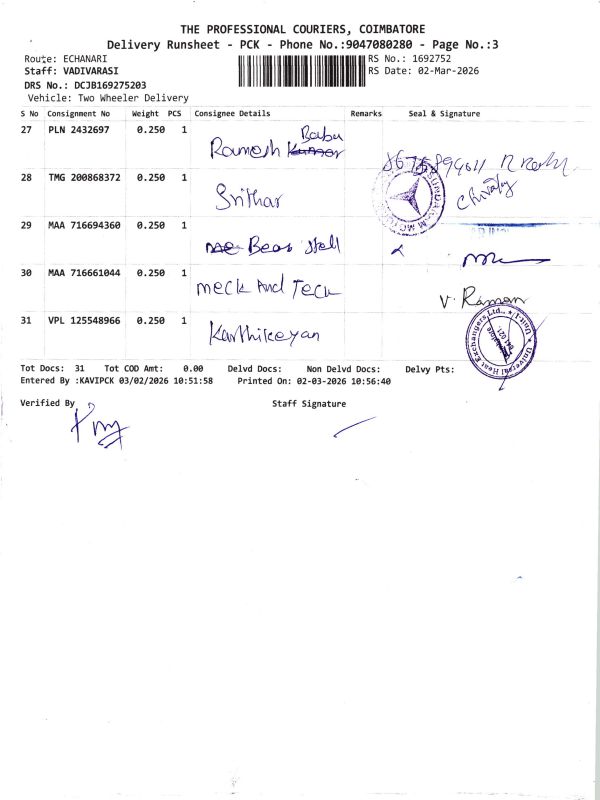 THE PROFESSIONAL COURIERS, COIMBATORE
Delivery Runsheet - PCK - Phone No.:9047080280 - Page No.:3
Route: ECHANARI
RS No.: 1692752
Staff: VADIVARASI
RS Date: 02-Mar-2026
DRS No.: DCJB169275203
Vehicle: Two Wheeler Delivery
S No Consignment No Weight PCS Consignee Details Remarks Seal & Signature
27 PLN 2432697 0.250 1 Ramesh Kumar Babu
28 TMG 200868372 0.250 1 Srithar
SUNDARAM MOTORS
29 MAA 716694360 0.250 1 Bear
30 MAA 716661044 0.250 1 Meck And Teck
V. Raman
31 VPL 125548966 0.250 1 Karthikeyan
Universal Heat Exchangers Ltd., Unit-I
Tot Docs: 31 Tot COD Amt: 0.00 Delvd Docs: Non Delvd Docs: Delvy Pts:
Entered By :KAVIPCK 03/02/2026 10:51:58 Printed On: 02-03-2026 10:56:40
Verified By Staff Signature